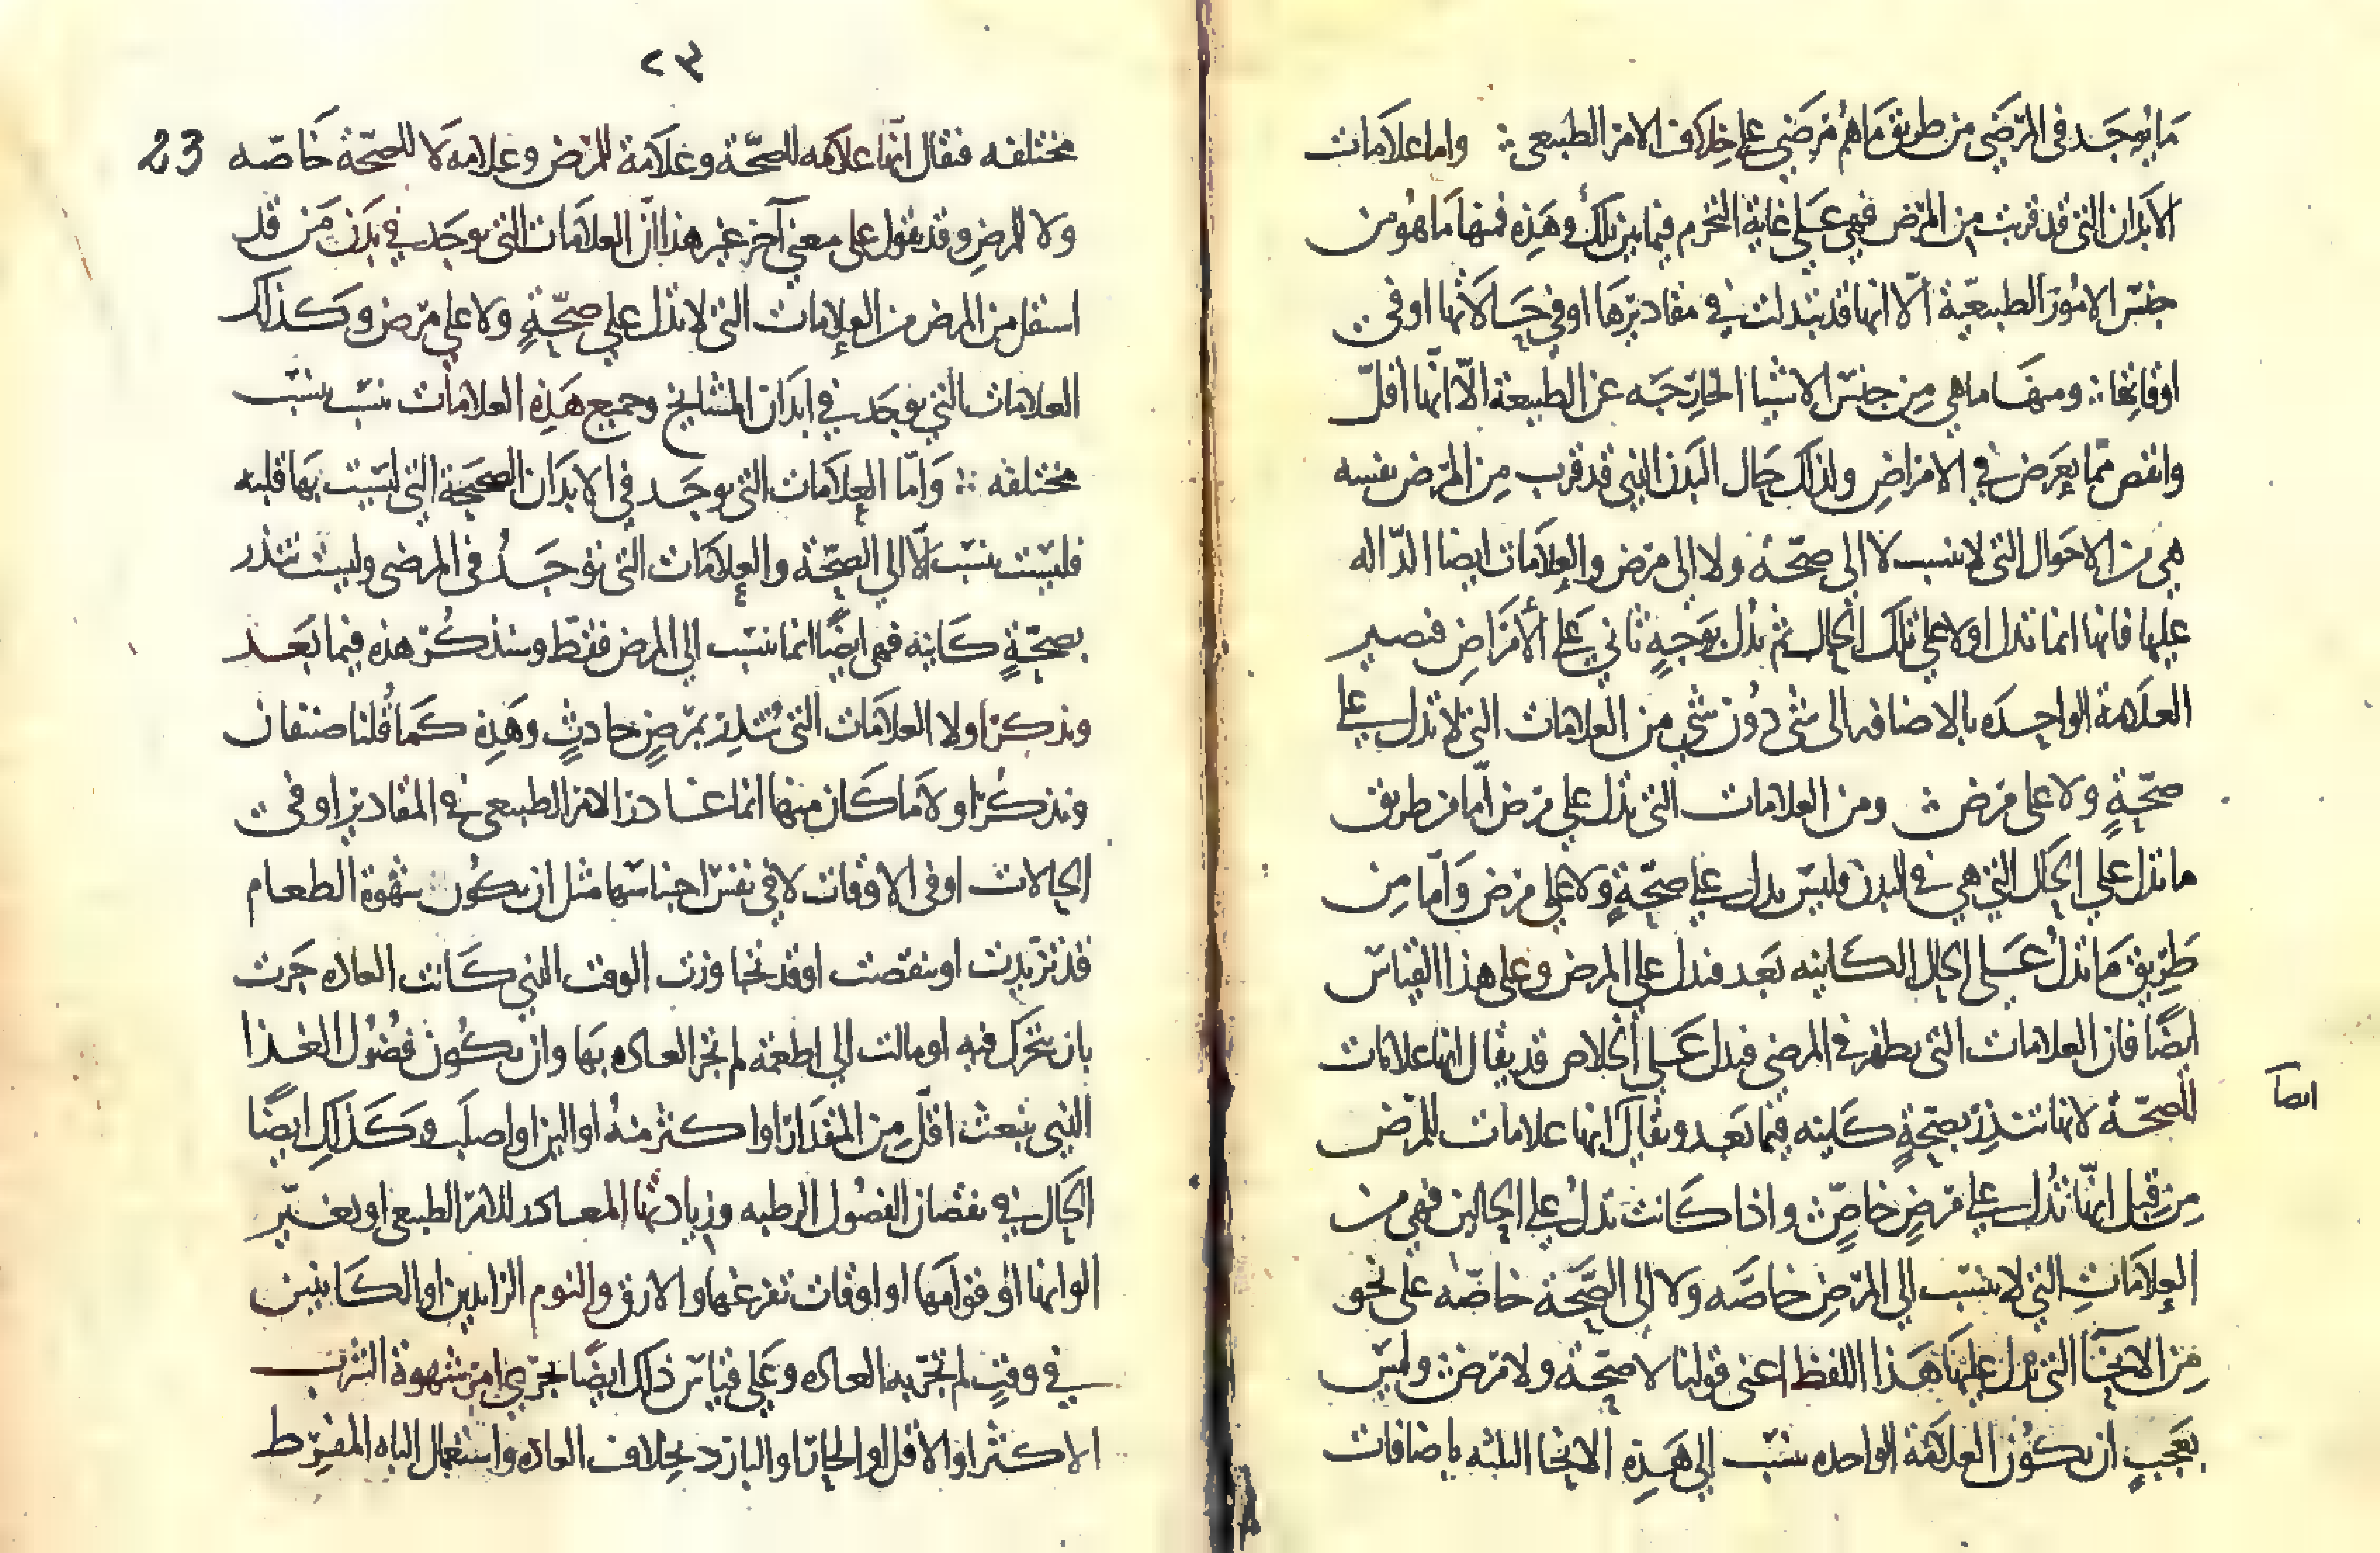 ما يوجد في المرضى من طريق ما هم مرضى على خلاف الامر الطبيعي ∴ واما علامات
الابدان التي قد قربت من المرض فهي على غاية التخرم فيما بين تلك وهذه فمنها ما هو من
جنس الامور الطبيعية الا انها قد تبدلت في مقاديرها او في حالاتها او في
اوقاتها ∴ ومنها ما هي من جنس الاشيا الخارجه عن الطبيعة الا انها اقل
وانقص مما يعرض في الامراض ولذلك حال البدن الذي قد قرب من المرض نفسه
هي من الاحوال التي لا تنسب لا الى صحة ولا الى مرض والعلامات ايضا الداله
عليها فانها انما تدل اولا على تلك الحال ثم تدل بوجه ثاني على الأمراض فتصير
العلامة الواحده بالاضافه الى شي دون شي من العلامات التي لا تدل على
صحة ولا على مرض ومن العلامات التي تدل على مرض اما من طريق
ما تدل على الحال التي هي في البدن فليس تدل على صحة ولا على مرض واما من
طريق ما تدل على الحال الكاينه بعد فتدل على المرض وعلى هذا القياس
ايضا فان العلامات التي تظهر في المرضى فتدل على الخلاص قد يقال انها علامات
للصحة لانها تنذر بصحة كاينه فيما بعد ويقال انها علامات للمرض
ايضا
من قبل انها تدل على مرض خاص واذا كانت تدل على الحالين فهي من
العلامات التي لا تنسب الى المرض خاصه ولا الى الصحة خاصه على نحو
من الانحا التي يدل عليها هذا اللفظ اعني قولنا لا صحة ولا مرض وليس
بعجب ان تكون العلامة الواحده تنسب الى هذه الانحا الثلثه باضافات
٢٣
23
مختلفه فيقال انها علامه للصحة وعلامة للمرض وعلامه لا للصحة خاصه
ولا للمرض وقد نقول على معنى آخر غير هذا ان العلامات التي توجد في بدن من قد
استقل من المرض من العلامات التي لا تدل على صحة ولا على مرض وكذلك
العلامات التي توجد في ابدان المشايخ وجميع هذه العلامات تنسب بنسب
مختلفه ∴ واما العلامات التي توجد في الابدان الصحيحة التي ليست بها قلبه
فليست تنسب الا الى الصحة والعلامات التي توجد في المرضى وليست تنذر
بصحة كاينه فهي ايضا انما تنسب الى المرض فقط وسنذكر هذه فيما بعد
ونذكر اولا العلامات التي تنذر بمرض حادث وهذه كما قلنا صنفان
ونذكر اولا ما كان منها انما عنا دزا الامر الطبيعي في المقادير او في
الحالات او في الاوقات لا في نفس اجناسها مثل ان تكون شهوة الطعام
قد تزيدت او نقصت او قد تجاوزت الوقت الذي كانت العاده جرت
بان تتحرك فيه او مالت الى اطعمة لم تجر العاده بها وان تكون فضول الغذا
التي تنبعث اقل من المقدار او اكثر منه او الين او اصلب وكذلك ايضا
الحال في نقصان الفضول الرطبه وزيادتها المعاند للامر الطبيعي او تغير
الوانها او قوامها او اوقات تفرغها والارق والنوم الزايدين او الكاينين
في وقت لم تجر به العاده وعلى قياس ذلك ايضا يجري امر شهوة الشرب
الاكثر او الاقل او الحار او البارد بخلاف العاده واستعمال الباه المفرط